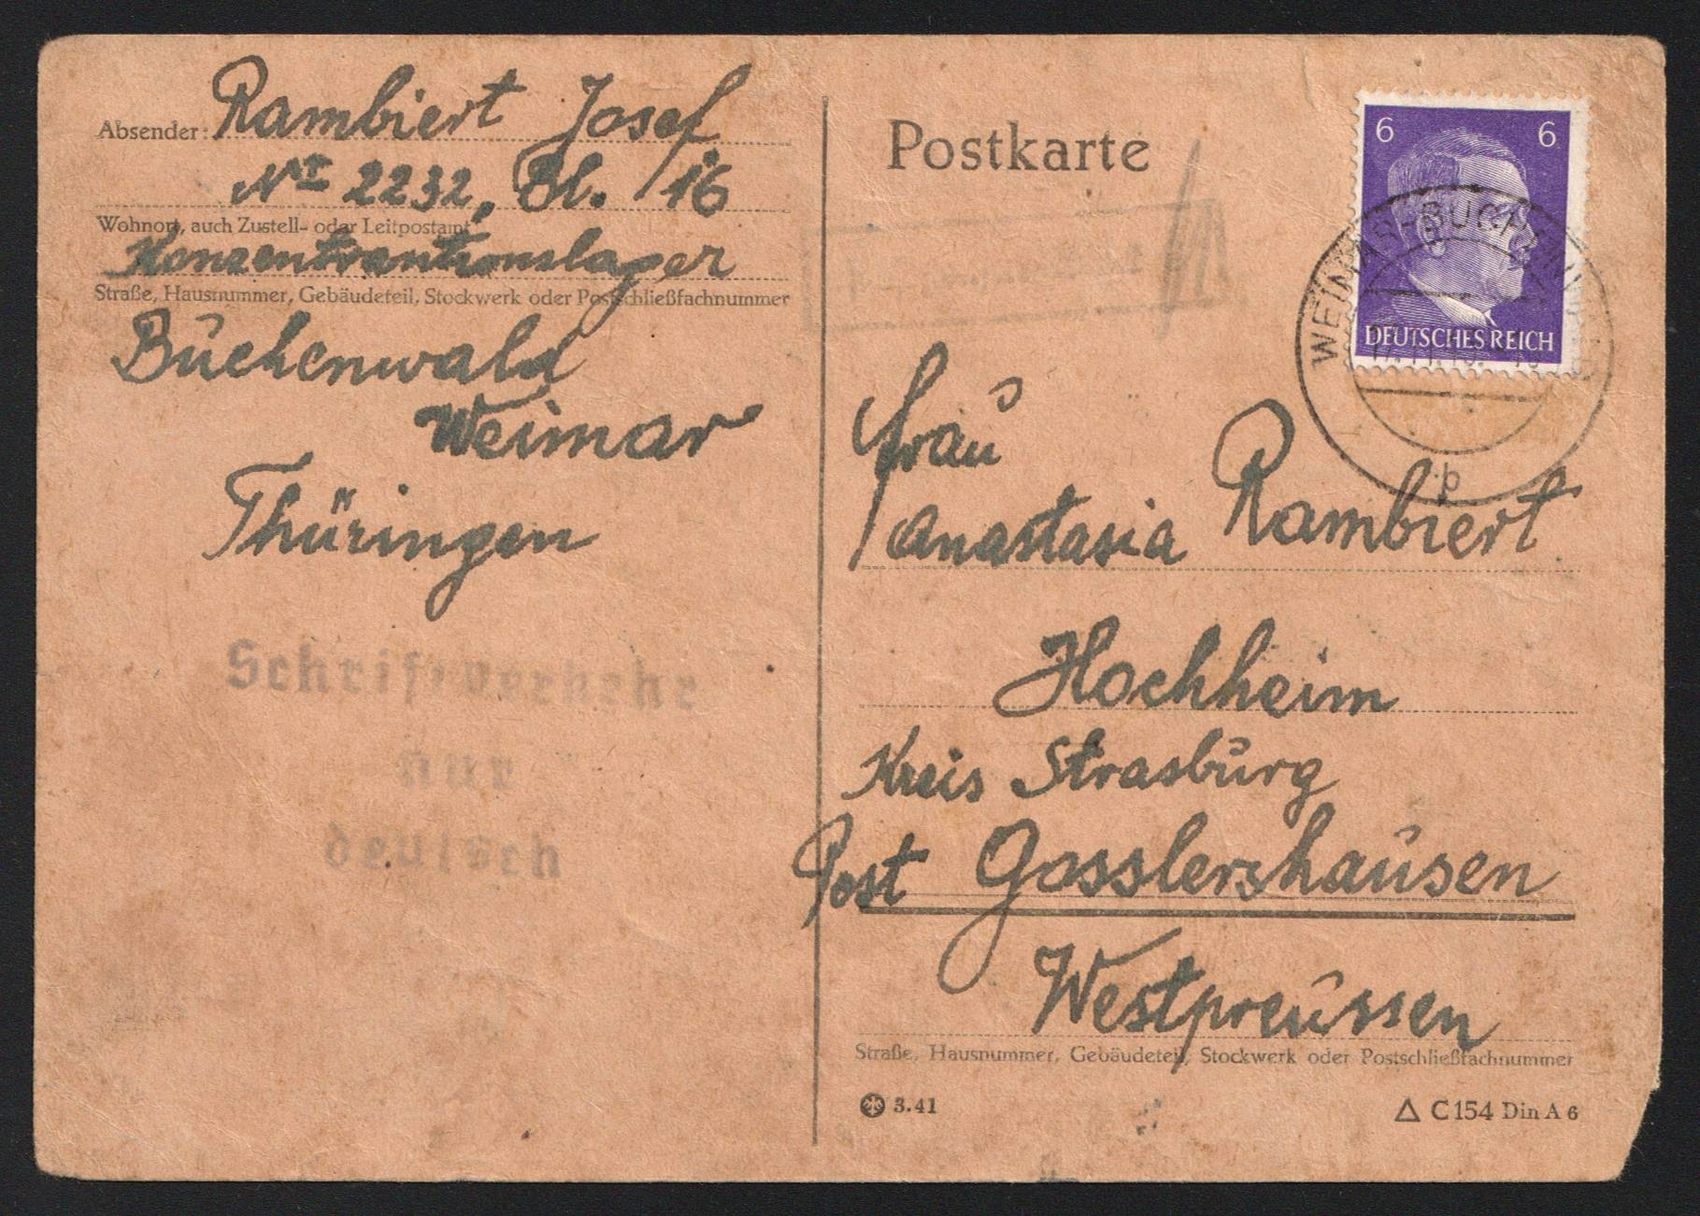 Absender: Rambiert Josef
Nr 2232, Bl. 16
Wohnort, auch Zustell- oder Leitpostamt
Konzentrantionslager
Straße, Hausnummer, Gebäudeteil, Stockwerk oder Postschließfachnummer
Buchenwald
Weimar
Thüringen
Schriftverkehr
nur
deutsch
Postkarte
6 6
DEUTSCHES REICH
WEIMAR-BUCHENWALD
b
Frau
Anastasia Rambiert
Hochheim
Kreis Strasburg
Post Gosslershausen
Westpreussen
Straße, Hausnummer, Gebäudeteil, Stockwerk oder Postschließfachnummer
3.41
C 154 Din A 6